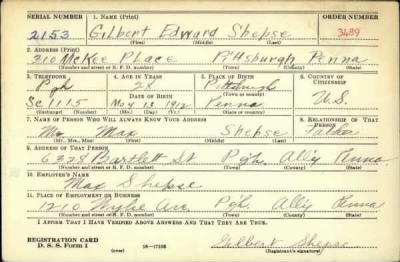 SERIAL NUMBER 1. NAME (Print) ORDER NUMBER
2153 Gilbert Edward Shepse 3489
(First) (Middle) (Last)
2. ADDRESS (Print)
310 McKee Place Pittsburgh Penna
(Number and street or R. F. D. number) (Town) (County) (State)
3. TELEPHONE 4. AGE IN YEARS 5. PLACE OF BIRTH 6. COUNTRY OF CITIZENSHIP
Pgh 28 Pittsburgh
DATE OF BIRTH (Town or county)
Sc. 1115 May 13 1912 Penna U.S.
(Exchange) (Number) (Mo.) (Day) (Yr.) (State or country)
7. NAME OF PERSON WHO WILL ALWAYS KNOW YOUR ADDRESS 8. RELATIONSHIP OF THAT PERSON
Mr Max Shepse Father
(Mr., Mrs., Miss) (First) (Middle) (Last)
9. ADDRESS OF THAT PERSON
6328 Bartlett St Pgh. Ally Penna.
(Number and street or R. F. D. number) (Town) (County) (State)
10. EMPLOYER'S NAME
Max Shepse
11. PLACE OF EMPLOYMENT OR BUSINESS
1210 Wylie Ave. Pgh. Ally Penna
(Number and street or R. F. D. number) (Town) (County) (State)
I AFFIRM THAT I HAVE VERIFIED ABOVE ANSWERS AND THAT THEY ARE TRUE.
REGISTRATION CARD
D. S. S. Form 1 (over) 16-17105 Gilbert Shepse
(Registrant's signature)